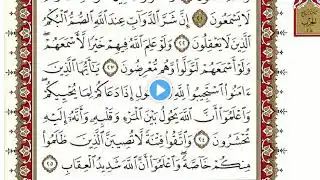 لَا يَسْمَعُونَ ٢١ إِنَّ شَرَّ الدَّوَآبِّ عِندَ اللَّهِ الصُّمُّ الْبُكْمُ
الَّذِينَ لَا يَعْقِلُونَ ٢٢ وَلَوْ عَلِمَ اللَّهُ فِيهِمْ خَيْرًا لَّأَسْمَعَهُمْ
وَلَوْ أَسْمَعَهُمْ لَتَوَلَّوا وَّهُم مُّعْرِضُونَ ٢٣ يَا أَيُّهَا الَّذِينَ
ءَامَنُوا اسْتَجِيبُوا لِلَّهِ وَلِلرَّسُولِ إِذَا دَعَاكُمْ لِمَا يُحْيِيكُمْ
وَاعْلَمُوا أَنَّ اللَّهَ يَحُولُ بَيْنَ الْمَرْءِ وَقَلْبِهِ وَأَنَّهُ إِلَيْهِ
تُحْشَرُونَ ٢٤ وَاتَّقُوا فِتْنَةً لَّا تُصِيبَنَّ الَّذِينَ ظَلَمُوا
مِنكُمْ خَاصَّةً وَاعْلَمُوا أَنَّ اللَّهَ شَدِيدُ الْعِقَابِ ٢٥